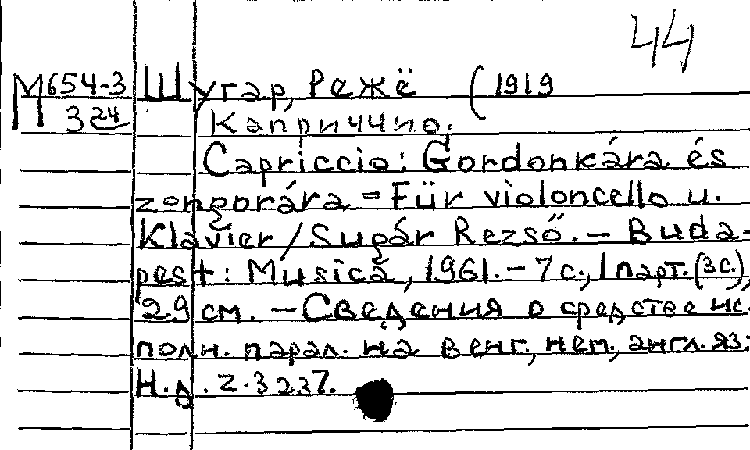 44
М654-3 Шугар, Режё (1919
324 Каприччио.
Capriccio: Gordonkára és
zongorára = Für violoncello u.
Klavier / Sugár Rezső. – Buda-
pest: Musica, 1961. – 7 с., 1 парт. (3с.),
29 см. – Сведения о средстве ис-
полн. парал. на венг., нем., англ. яз.
Н.д. Z. 3237.